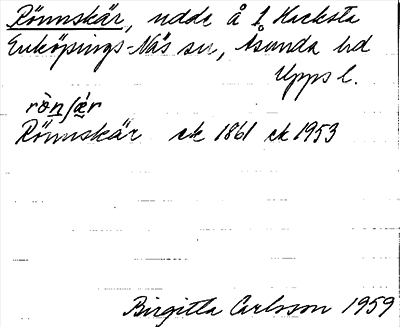 Rönnskär, udde å 1 Hacksta
Enköpings-Näs sn, Åsunda hd
Upps l.
rò̱nʃǽr
Rönnskär ek 1861 ek 1953
Birgitta Carlsson 1959